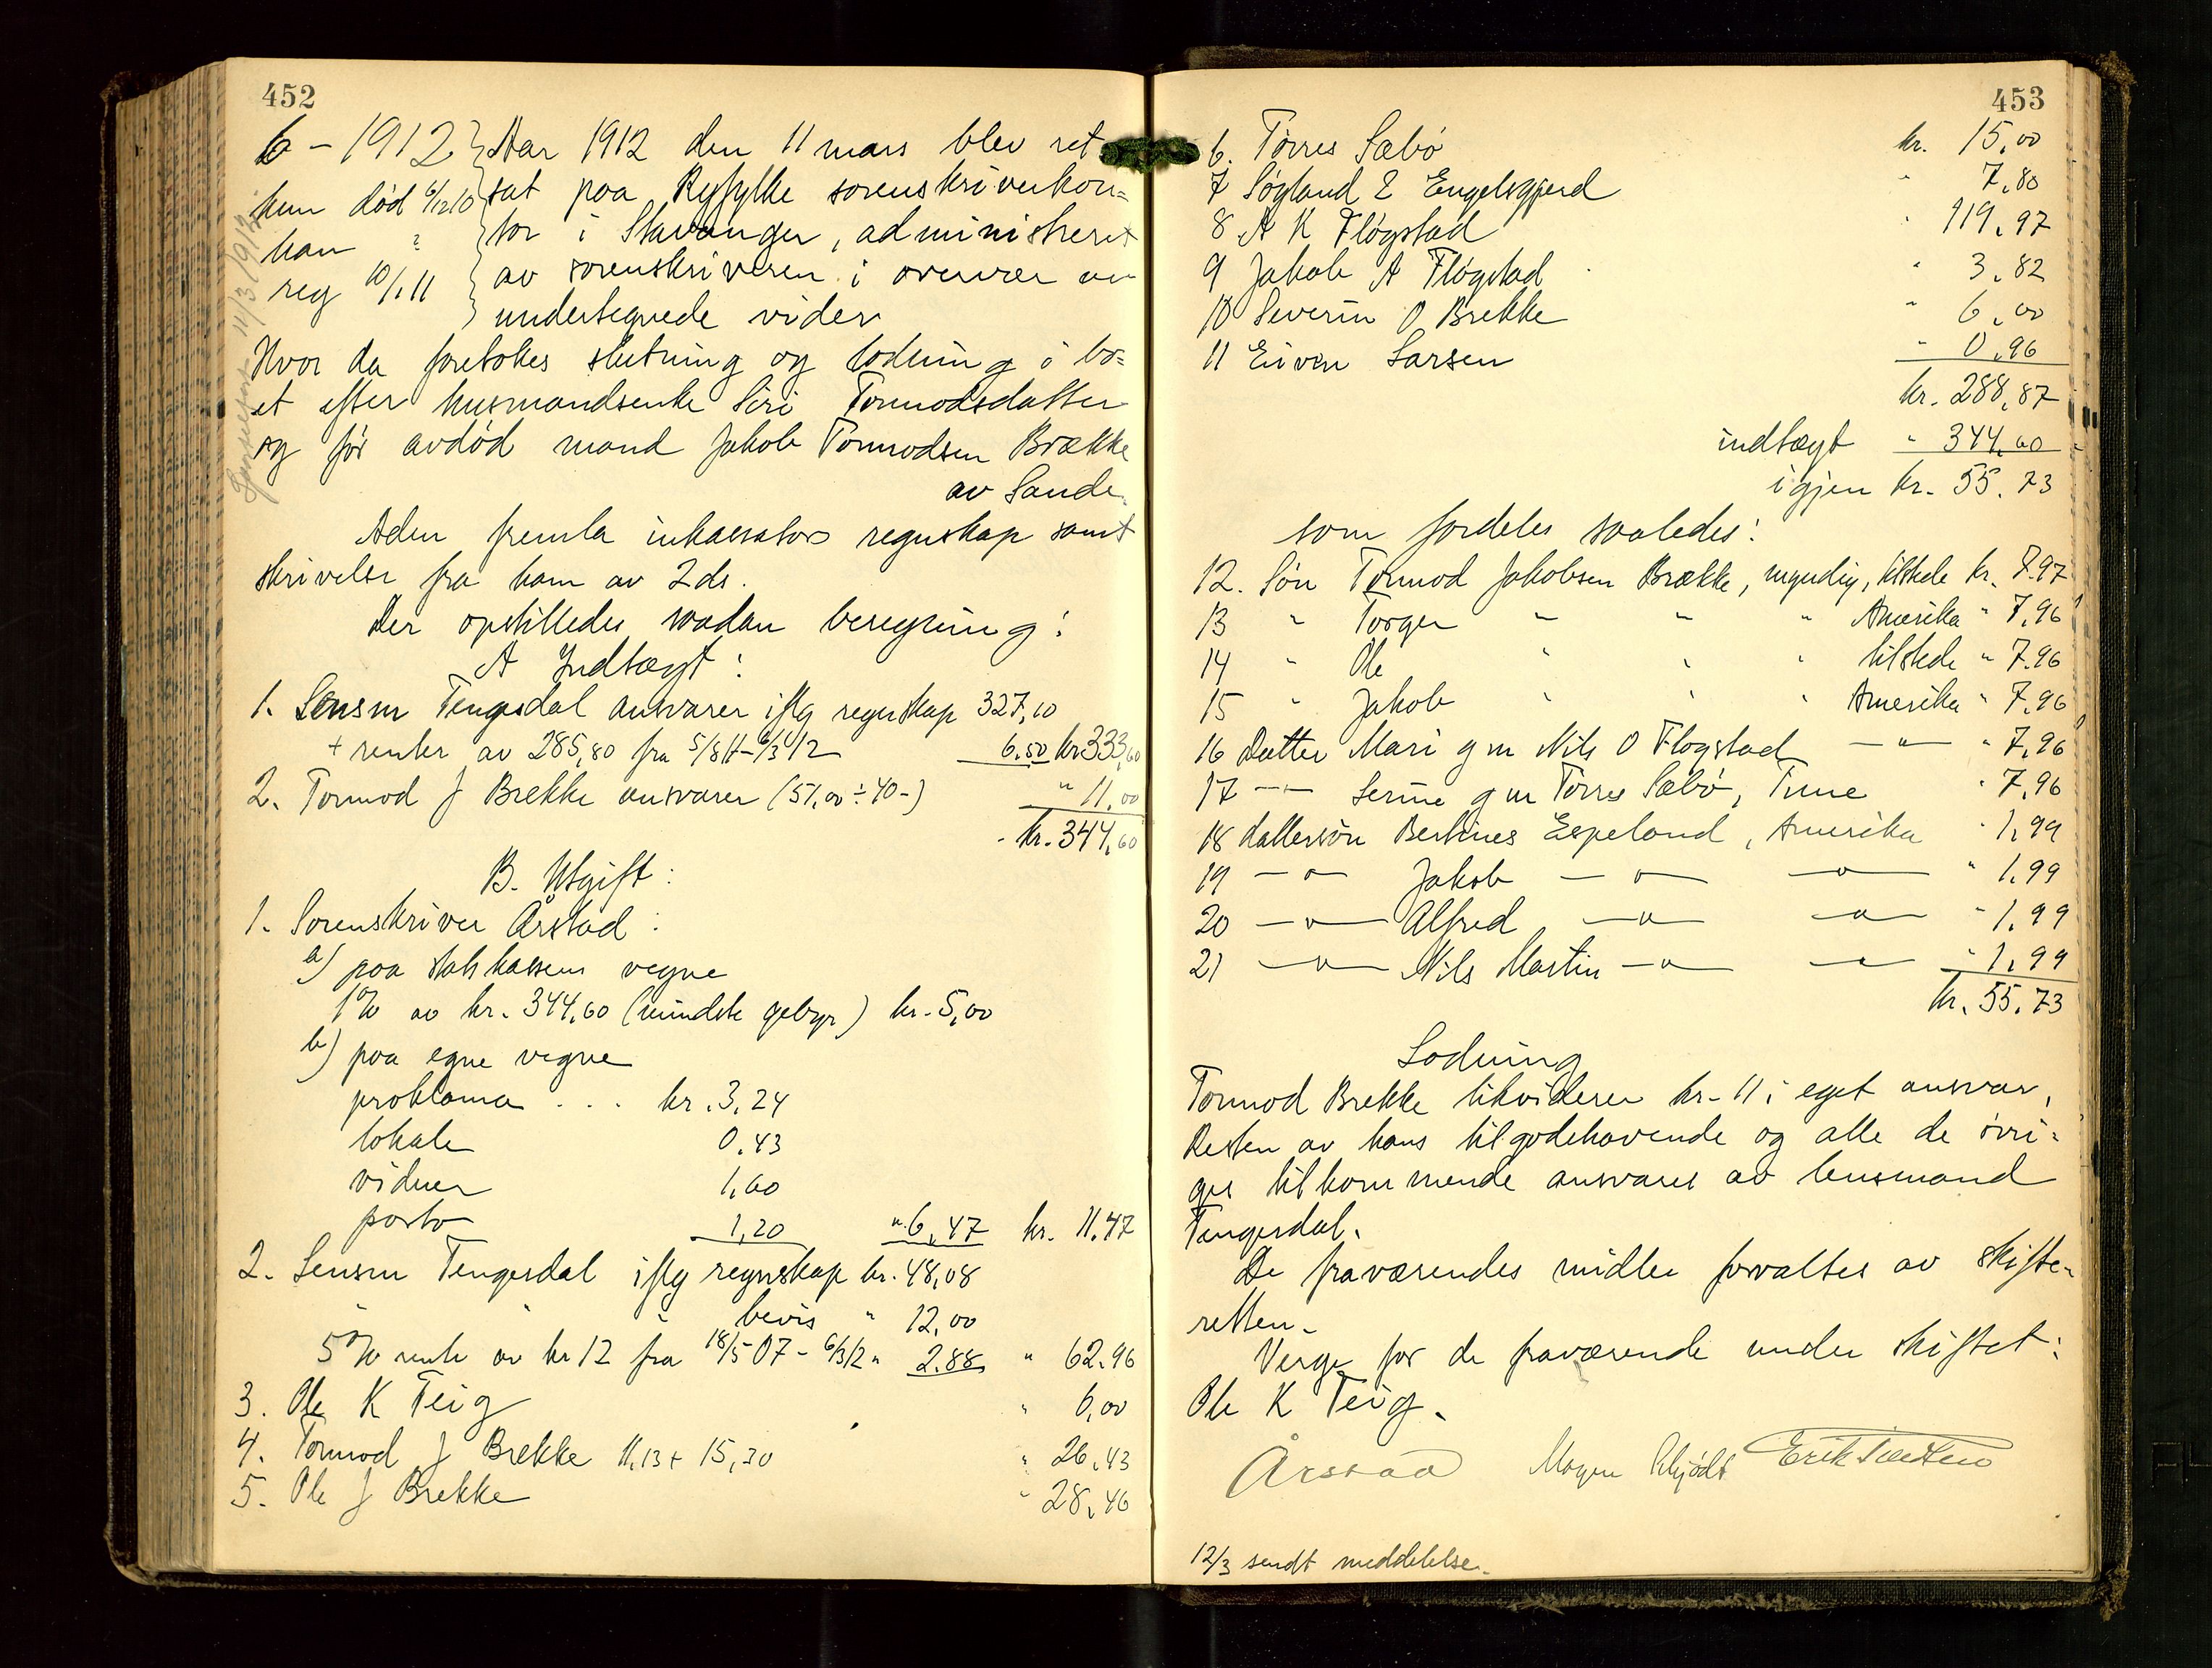 452
6 – 1912
hun død 6/12 10
han "?
reg 10/1 11
Aar 1912 den 11 mars blev ret
sat paa Ryfylke sorenskriverkon=
tor i Stavanger, administreret
av sorenskriveren i overvær av
undertegnede vidner
Hvor da foretokes slutning og lodning i bo=
et efter husmandsenke Siri Tormodsdatter
og før avdød mand Jakob Tormodsen Brække
av Sande.
Aden fremla inkassators regnskap samt
skrivelse fra ham av 2 ds.
Der opstilledes saadan beregning:
A Indtægt:
1. Lensm Tengesdal ansvarer iflg regnskap 327,10
+ renter av 285,80 fra 5/8 11 – 6/3 12 6.50 kr 333,60
2. Tormod J Brekke ansvarer (51,00 ÷ 40-) " 11,00
kr. 344,60
B. Utgift:
1. Sorenskriver Årstad:
a) paa statskassens vegne
1% av kr. 344,60 (mindste gebyr) kr. 5,00
b) paa egne vegne
proklama . . . kr. 3,24
lokale 0,43
vidner 1,60
porto 1,20 " 6,47 kr. 11.47
2. Lensm Tengesdal iflg regnskap kr. 48,08
" " " bevis " 12,00
5% rente av kr 12 fra 18/5 07 – 6/3 12 " 2.88 " 62.96
3. Ole K Teig " 6,00
4. Tormod J Brekke 11,13 + 15,30 " 26,43
5. Ole J Brekke " 28,46
453
6. Tørres Sæbø kr. 15,00
7 Søgland & Engelsgjerd " 7,80
8 A K Fløgstad " 119,97
9 Jakob A Fløgstad " 3,82
10 Severin O Brekke " 6,00
11 Eiven Larsen " 0,96
kr. 288,87
indtægt " 344,60
igjen kr. 55.73
som fordeles saaledes:
12. Søn Tormod Jakobsen Brække, myndig, tilstede kr. 7.97
13 " Torger " " " Amerika " 7,96
14 " Ole " " " tilstede " 7.96
15 " Jakob " " " Amerika " 7.96
16 Datter Mari g m Nils O Fløgstad —"— " 7,96
17 —"— Serine g m Tørres Sæbø, Time " 7,96
18 dattersøn Bertines Espeland, Amerika " 1,99
19 —"— Jakob —"— —"— " 1,99
20 —"— Alfred —"— —"— " 1,99
21 —"— Nils Martin —"— —"— " 1,99
kr. 55.73
Lodning
Tormod Brekke likviderer kr. 11 i eget ansvar,
Resten av hans tilgodehavende og alle de øvri=
ges tilkommende ansvares av lensmand
Tengesdal.
De fraværendes midler forvaltes av skifte=
retten.
Verge for de fraværende under skiftet:
Ole K Teig.
Årstad Mogen Schjødt Erik
12/3 sendt meddelelse.